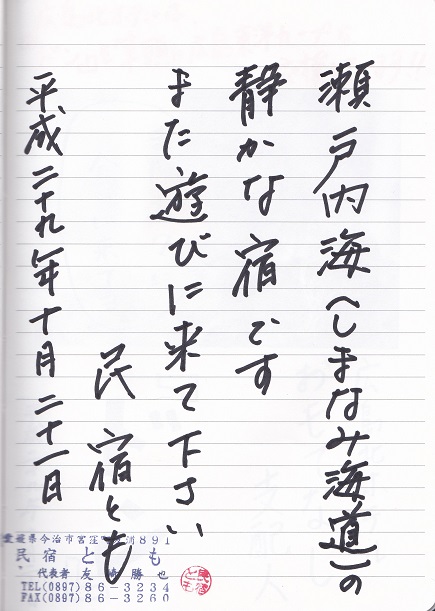 瀬戸内海(しまなみ海道)の
静かな宿です
また遊びに来て下さい
民宿とも
平成二十九年十月二十一日
愛媛県今治市宮窪町 891
民宿とも
代表者 友 勝也
TEL(0897)86-3234
FAX(0897)86-3260
民宿とも